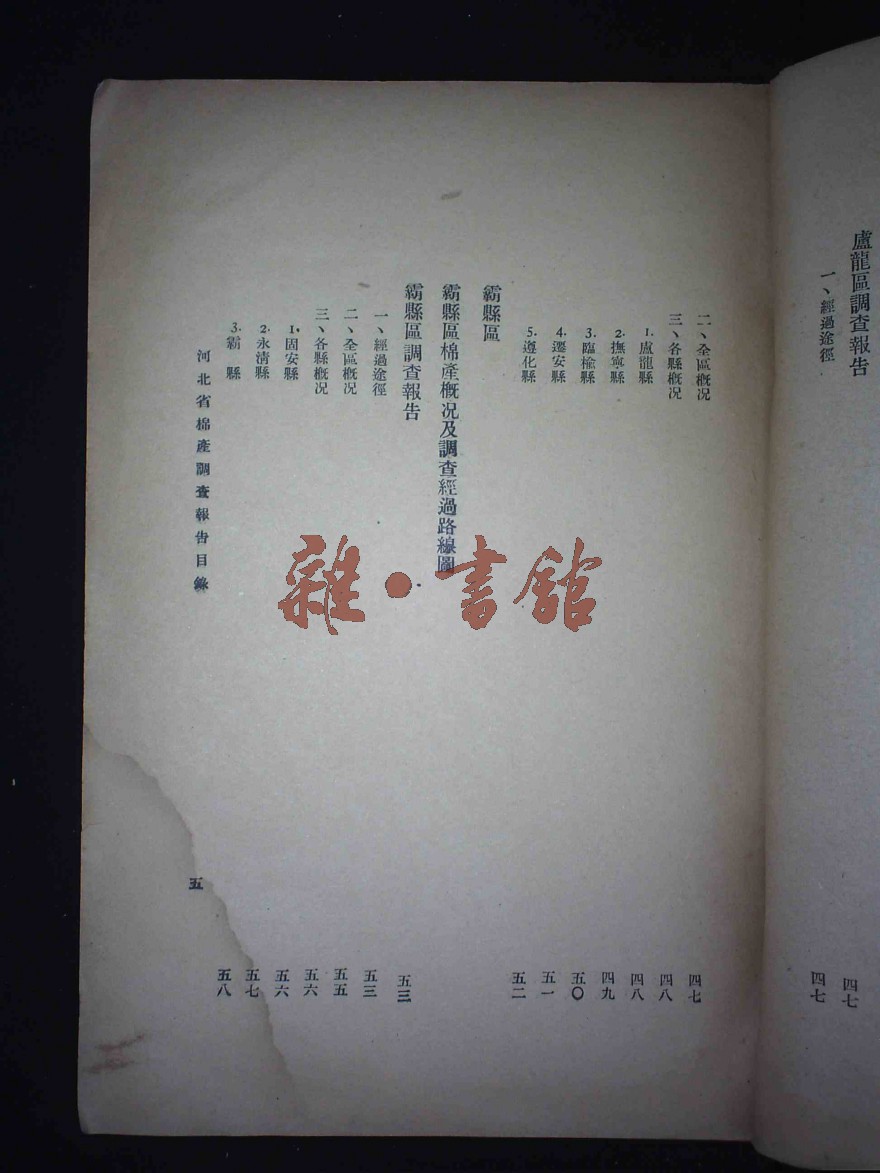 盧龍區調查報告 四七
一、經過途徑 四七
二、全區概況 四七
三、各縣概況 四八
1.盧龍縣 四八
2.撫寧縣 四九
3.臨榆縣 五〇
4.遷安縣 五一
5.遵化縣 五二
霸縣區
霸縣區棉產概況及調查經過路線圖
霸縣區調查報告 五三
一、經過途徑 五三
二、全區概況 五五
三、各縣概況 五六
1.固安縣 五六
2.永清縣 五七
3.霸縣 五八
河北省棉產調查報告目錄 五
雜·書館